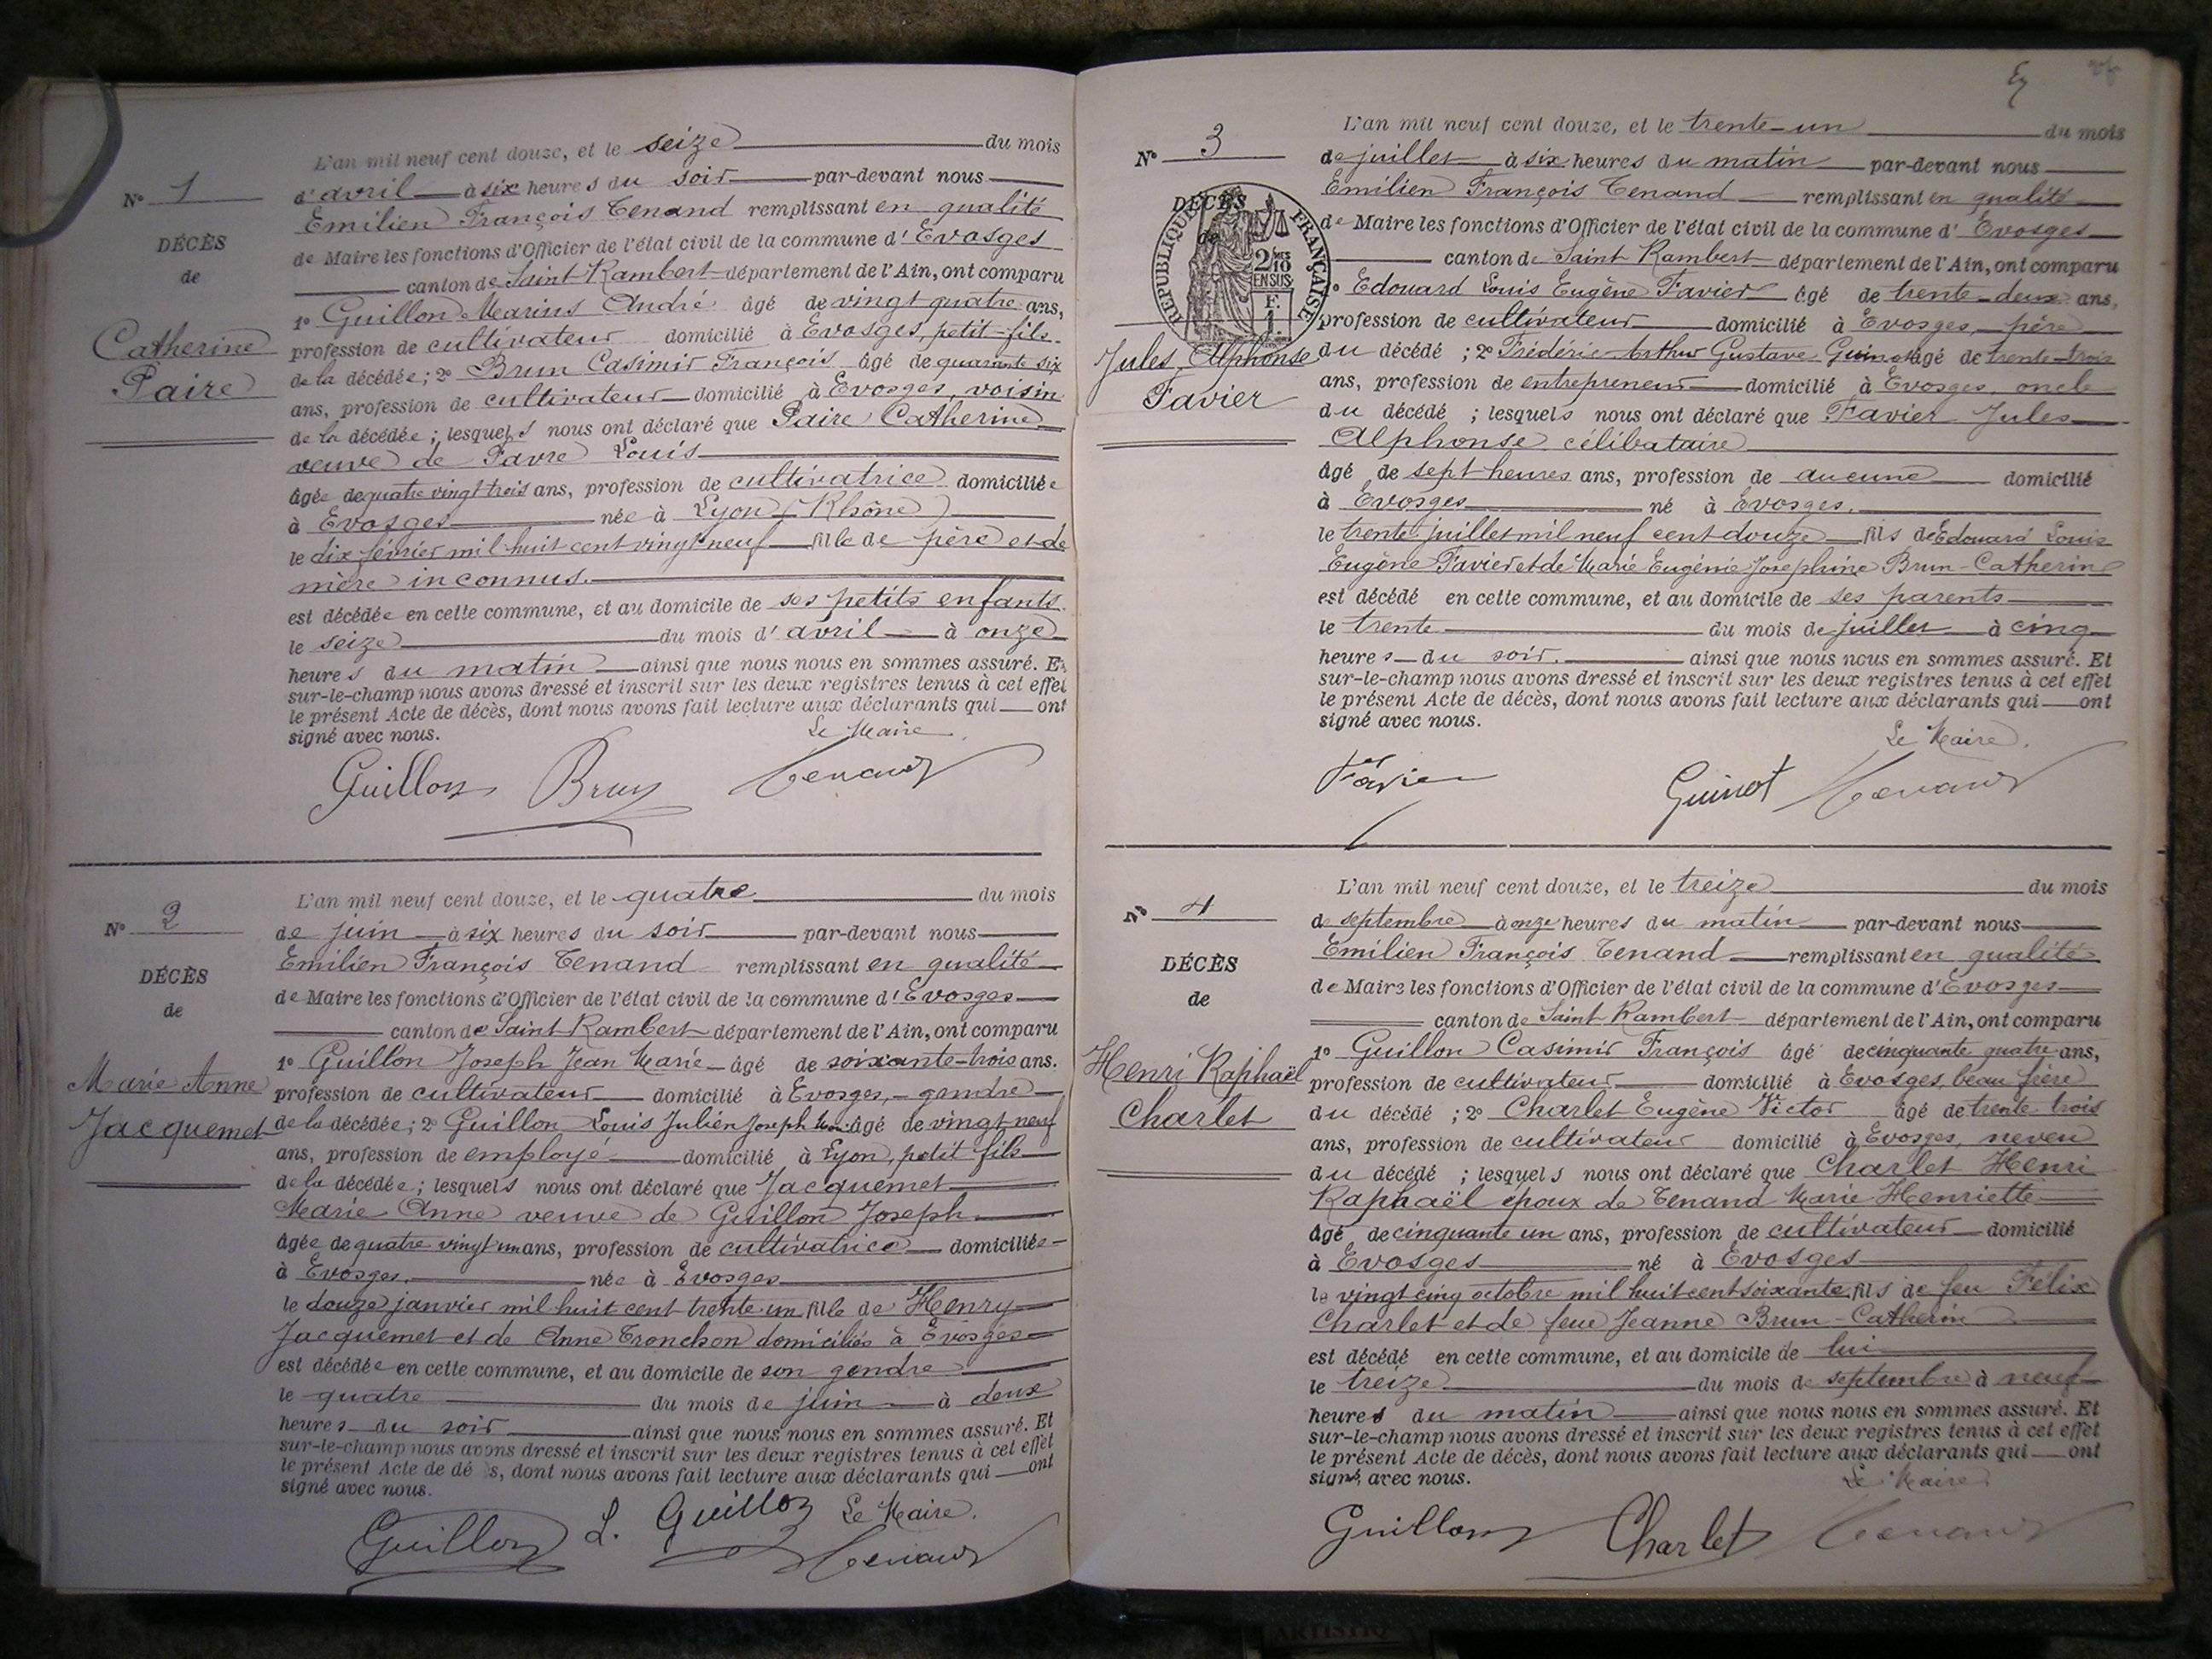 L'an mil neuf cent douze, et le seize du mois
N° 1
d'avril à six heures du soir par-devant nous
Emilien François Tenand remplissant en qualité
DÉCÈS
de Maire les fonctions d'Officier de l'état civil de la commune d'Evosges
de
canton de Saint Rambert département de l'Ain, ont comparu
1° Guillon Marius André âgé de vingt quatre ans,
Catherine
profession de cultivateur domicilié à Evosges, petit-fils
Paire
de la décédée; 2° Brun Casimir François âgé de quarante six
ans, profession de cultivateur domicilié à Evosges, voisin
de la décédée; lesquels nous ont déclaré que Paire Catherine
veuve de Favre Louis
âgée de quatre vingt trois ans, profession de cultivatrice domiciliée
à Evosges née à Lyon (Rhône)
le dix février mil huit cent vingt neuf fille de père et de
mère inconnus.
est décédée en cette commune, et au domicile de ses petits enfants.
le seize du mois d'avril à onze
heures du matin ainsi que nous nous en sommes assuré. Et
sur-le-champ nous avons dressé et inscrit sur les deux registres tenus à cet effet
le présent Acte de décès, dont nous avons fait lecture aux déclarants qui ont
signé avec nous.
Le Maire.
Guillon Brun Tenand
L'an mil neuf cent douze, et le quatre du mois
N° 2
de juin à six heures du soir par-devant nous
Emilien François Tenand remplissant en qualité
DÉCÈS
de Maire les fonctions d'Officier de l'état civil de la commune d'Evosges
de
canton de Saint Rambert département de l'Ain, ont comparu
1° Guillon Joseph Jean Marie âgé de soixante-trois ans.
Marie Anne
profession de cultivateur domicilié à Evosges, gendre
Jacquemet
de la décédée; 2° Guillon Louis Julien Joseph âgé de vingt neuf
ans, profession de employé domicilié à Lyon, petit fils
de la décédée; lesquels nous ont déclaré que Jacquemet
Marie Anne veuve de Guillon Joseph
âgée de quatre vingt un ans, profession de cultivatrice domiciliée
à Evosges. née à Evosges
le douze janvier mil huit cent trente un fille de Henry
Jacquemet et de Anne Tronchon domiciliés à Evosges
est décédée en cette commune, et au domicile de son gendre
le quatre du mois de juin à deux
heures du soir ainsi que nous nous en sommes assuré. Et
sur-le-champ nous avons dressé et inscrit sur les deux registres tenus à cet effet
le présent Acte de dé s, dont nous avons fait lecture aux déclarants qui ont
signé avec nous.
Le Maire.
Guillon L. Guillon Tenand
L'an mil neuf cent douze, et le trente-un du mois
N° 3
de juillet à six heures du matin par-devant nous
Emilien François Tenand remplissant en qualité
DÉCÈS
de
RÉPUBLIQUE FRANÇAISE
2/10 ENSUS
F. 1.
de Maire les fonctions d'Officier de l'état civil de la commune d'Evosges
canton de Saint Rambert département de l'Ain, ont comparu
1° Edouard Louis Eugène Favier âgé de trente-deux ans,
profession de cultivateur domicilié à Evosges, père
Jules Alphonse
du décédé; 2° Frédéric Arthur Gustave Guinot âgé de trente-trois
Favier
ans, profession de entrepreneur domicilié à Evosges, oncle
du décédé; lesquels nous ont déclaré que Favier Jules
Alphonse célibataire
âgé de sept heures ans, profession de aucune domicilié
à Evosges né à Evosges.
le trente juillet mil neuf cent douze fils de Edouard Louis
Eugène Favier et de Marie Eugénie Joséphine Brun-Catherin
est décédé en cette commune, et au domicile de ses parents
le trente du mois de juillet à cinq
heures du soir. ainsi que nous nous en sommes assuré. Et
sur-le-champ nous avons dressé et inscrit sur les deux registres tenus à cet effet
le présent Acte de décès, dont nous avons fait lecture aux déclarants qui ont
signé avec nous.
Le Maire.
Favier Guinot Tenand
L'an mil neuf cent douze, et le treize du mois
N° 4
de septembre à onze heures du matin par-devant nous
Emilien François Tenand remplissant en qualité
DÉCÈS
de Maire les fonctions d'Officier de l'état civil de la commune d'Evosges
de
canton de Saint Rambert département de l'Ain, ont comparu
1° Guillon Casimir François âgé de cinquante quatre ans,
Henri Raphaël
profession de cultivateur domicilié à Evosges, beau frère
Charlet
du décédé; 2° Charlet Eugène Victor âgé de trente trois
ans, profession de cultivateur domicilié à Evosges, neveu
du décédé; lesquels nous ont déclaré que Charlet Henri
Raphaël époux de Tenand Marie Henriette
âgé de cinquante un ans, profession de cultivateur domicilié
à Evosges né à Evosges
le vingt cinq octobre mil huit cent soixante fils de feu Félix
Charlet et de feue Jeanne Brun-Catherin
est décédé en cette commune, et au domicile de lui
le treize du mois de septembre à neuf
heures du matin ainsi que nous nous en sommes assuré. Et
sur-le-champ nous avons dressé et inscrit sur les deux registres tenus à cet effet
le présent Acte de décès, dont nous avons fait lecture aux déclarants qui ont
signé avec nous.
Le Maire
Guillon Charlet Tenand